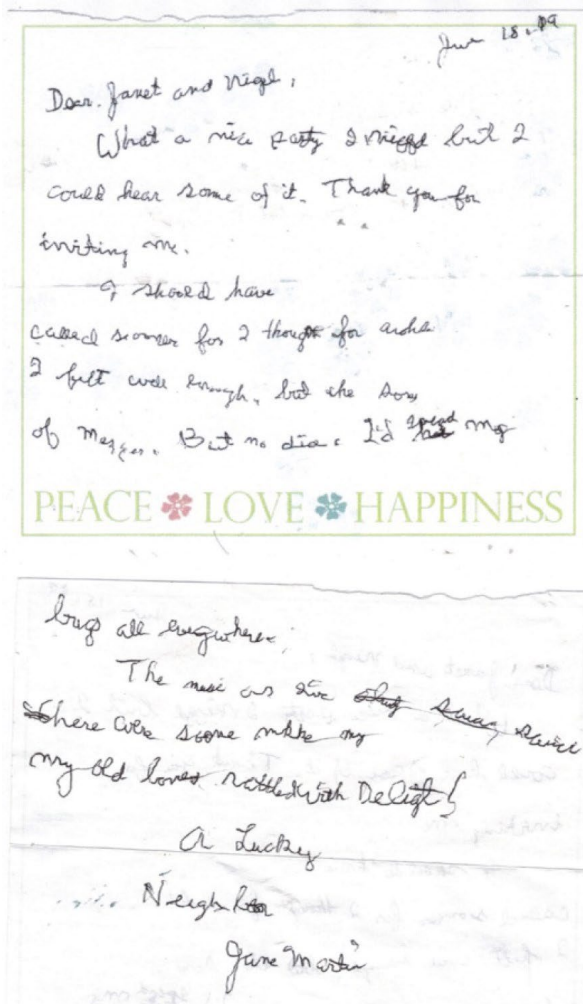 June 18, 09
Dear. Janet and Nigel,
What a nice party I missed but I
could hear some of it. Thank you for
inviting me.
I should have
called sooner for I thought for awhile
I felt well enough, but the
of . But no dice. I'd spread my
PEACE LOVE HAPPINESS
bugs all everywhere.
The music
there were some make my
my old bones rattled with Delight!
A Luckey
Neighbor
Jane Martin